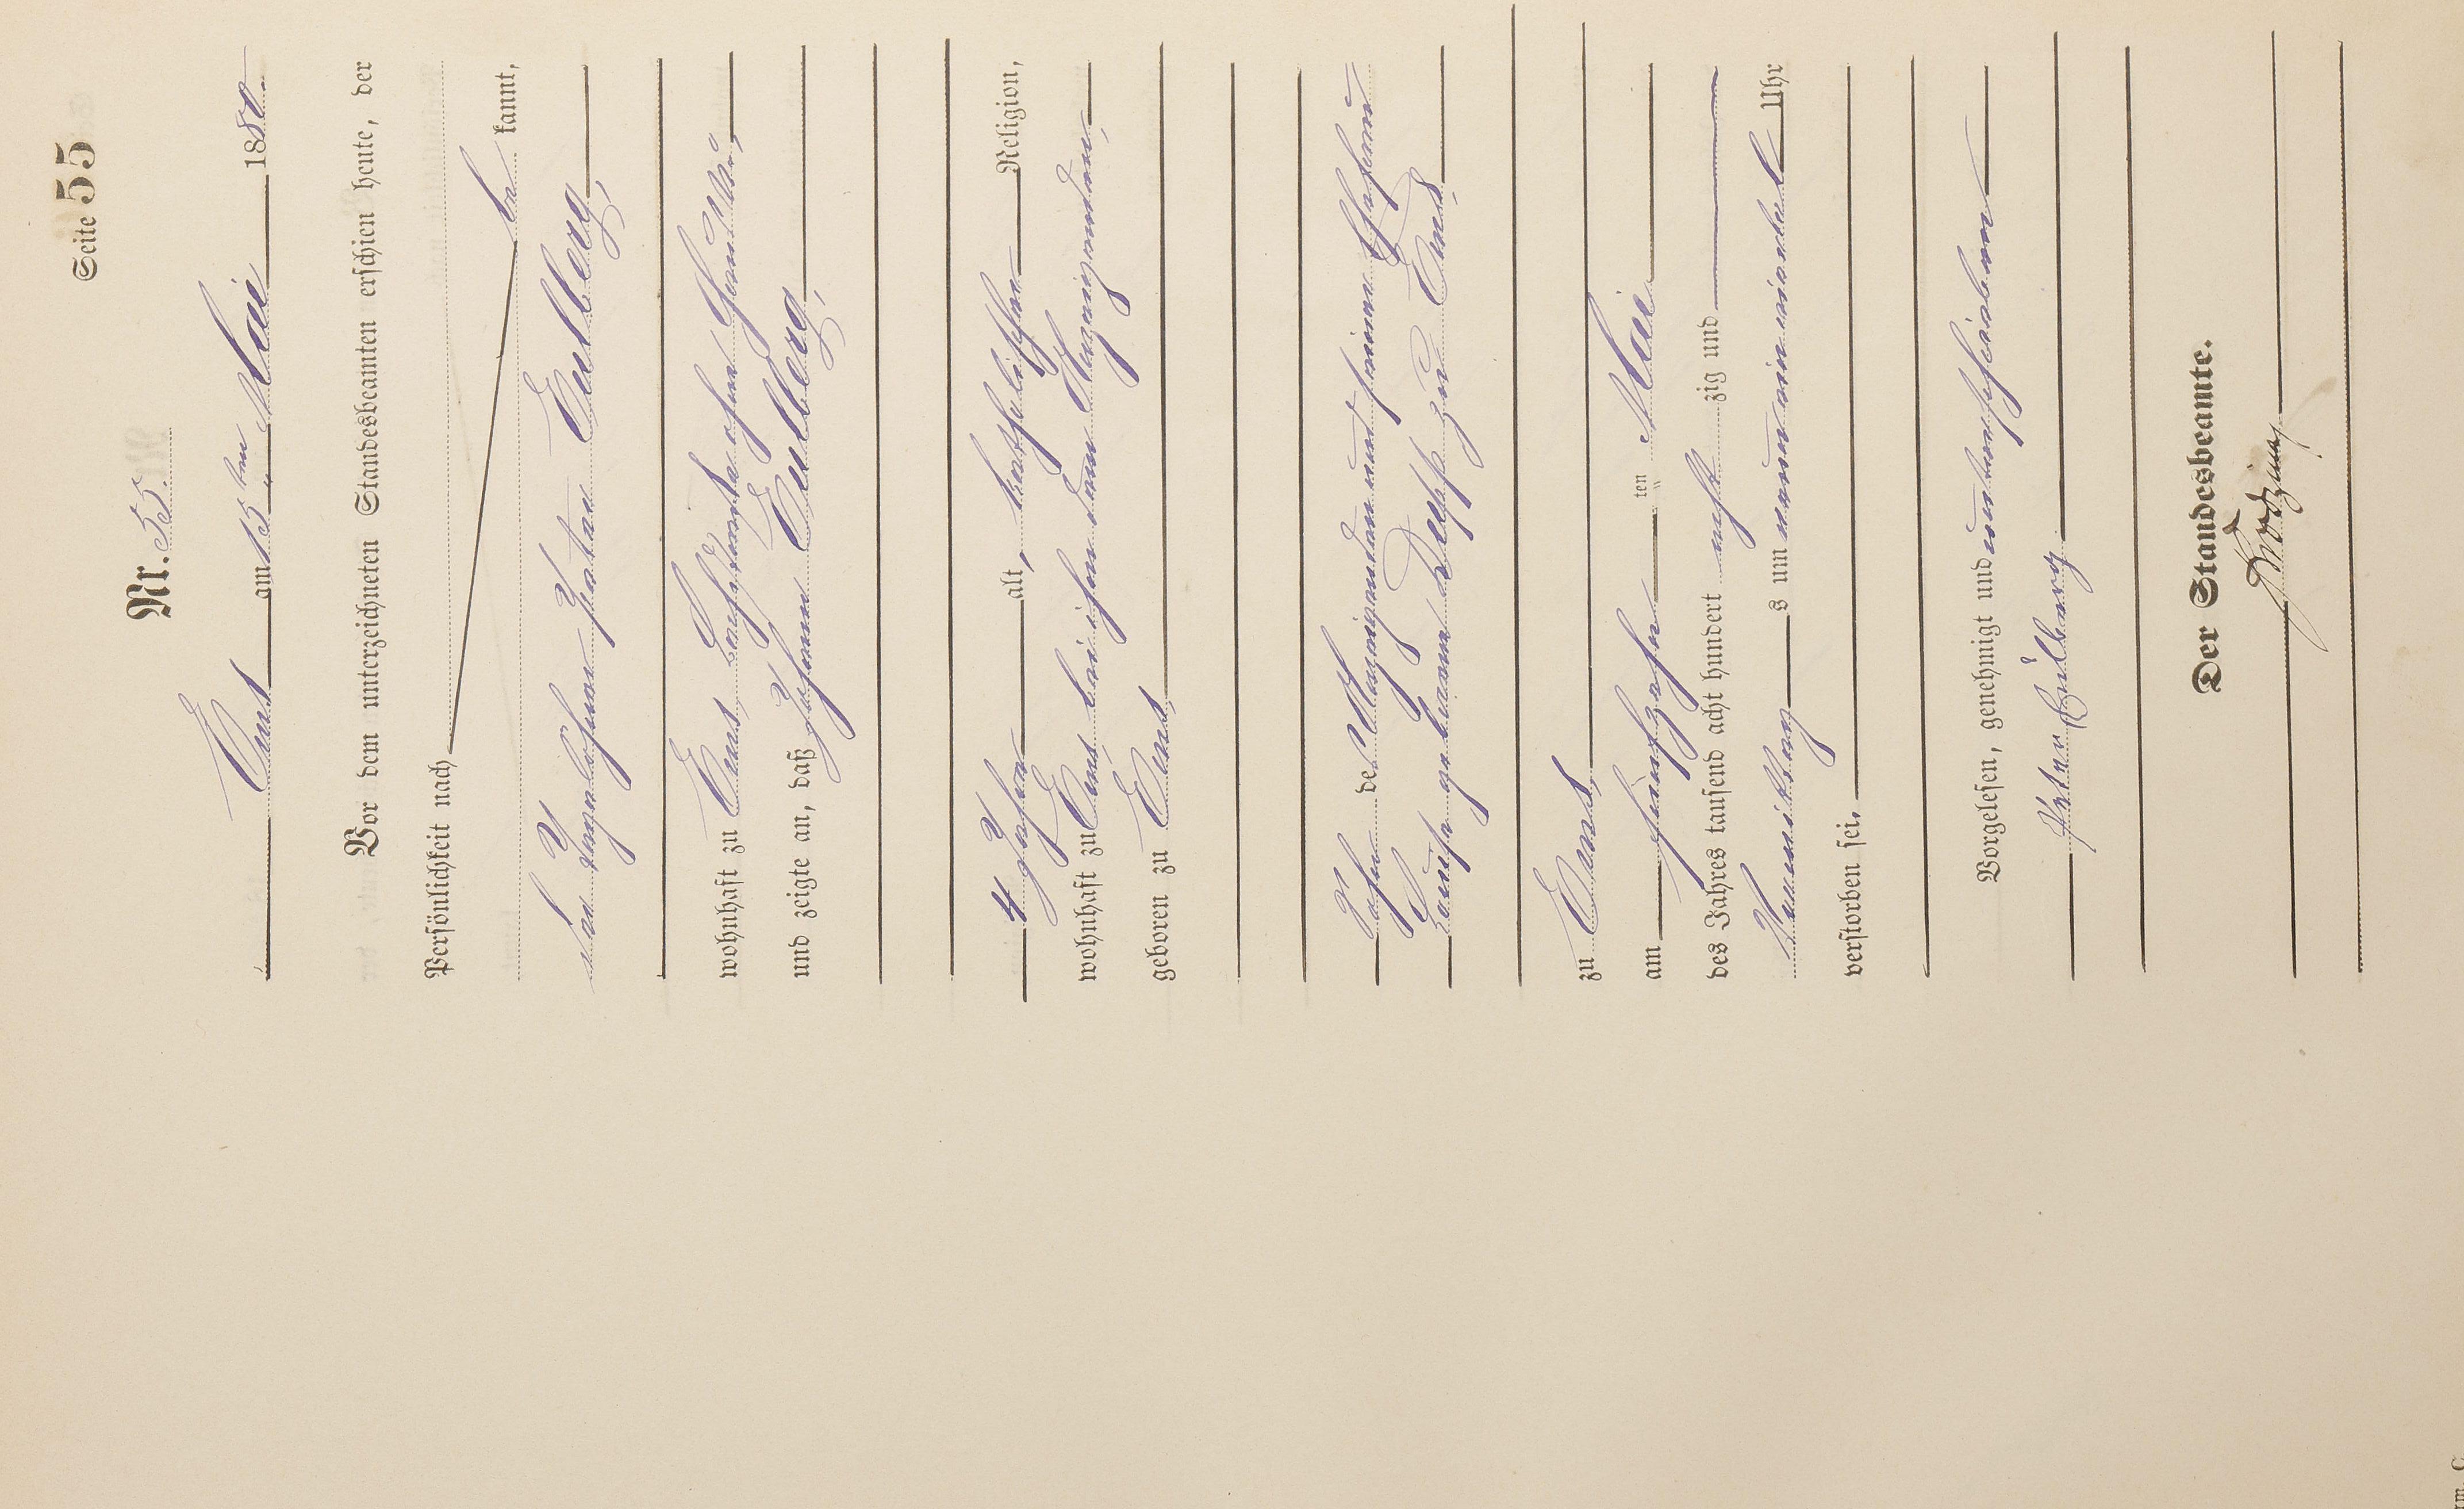 Seite 55
Nr. 55.
Ems am 15ten Mai 1880.
Vor dem unterzeichneten Standesbeamten erschien heute, der
Persönlichkeit nach
be kannt,
der Tagelöhner Peter Eulberg,
wohnhaft zu Ems,
und zeigte an, daß Johann Eulberg,
4 Jahre alt, katholischer Religion,
wohnhaft zu Ems bei ihm dem Anzeigenden,
geboren zu Ems,
Sohn des Anzeigenden und seiner Ehefrau
geborene Depp zu Ems,
zu Ems,
am fünfzehn ten Mai
des Jahres tausend acht hundert acht zig und
Vormittags um neun ein viertel Uhr
verstorben sei.
Vorgelesen, genehmigt und unterschrieben
Peter Eulberg
Der Standesbeamte.